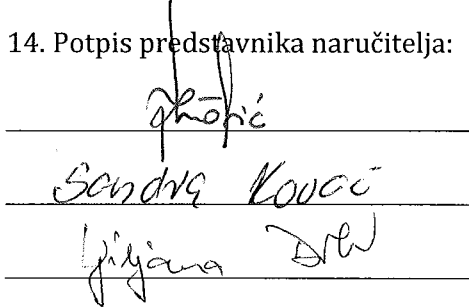 14. Potpis predstavnika naručitelja:
Sandra Kovač
Ljiljana